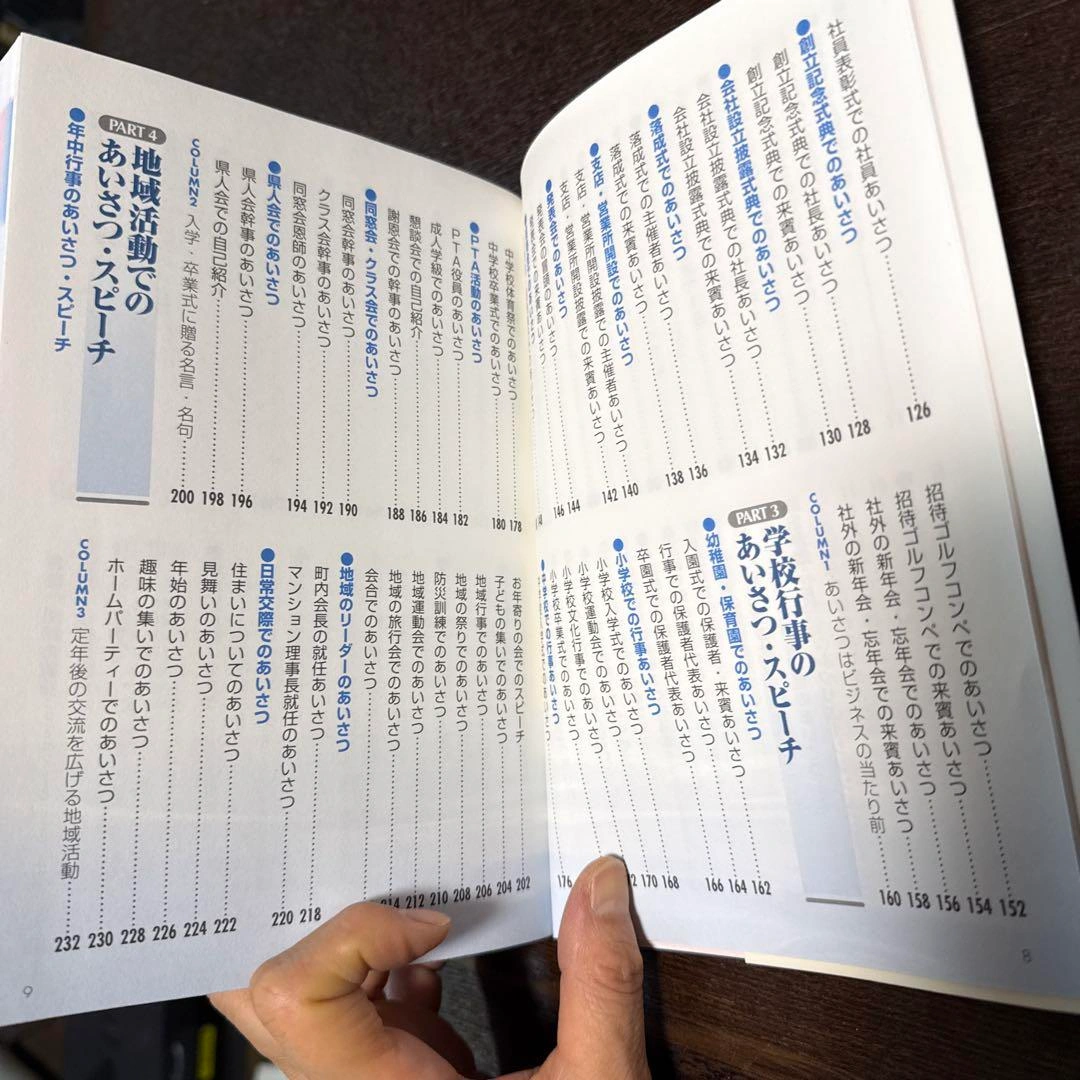 社員表彰式での社員あいさつ……126
●創立記念式典でのあいさつ
創立記念式典での社長あいさつ……128
創立記念式典での来賓あいさつ……130
●会社設立披露式典でのあいさつ
会社設立披露式典での社長あいさつ……132
会社設立披露式典での来賓あいさつ……134
●落成式でのあいさつ
落成式での主催者あいさつ……136
落成式での来賓あいさつ……138
●支店・営業所開設でのあいさつ
支店・営業所開設披露での主催者あいさつ……140
支店・営業所開設披露での来賓あいさつ……142
●発表会でのあいさつ
発表会での冒頭のあいさつ……144
発表会での来賓あいさつ……146
招待ゴルフコンペでのあいさつ……152
招待ゴルフコンペでの来賓あいさつ……154
社外の新年会・忘年会でのあいさつ……156
社外の新年会・忘年会での来賓あいさつ……158
COLUMN1 あいさつはビジネスの当たり前……160
PART 3
学校行事の
あいさつ・スピーチ
●幼稚園・保育園でのあいさつ
入園式での保護者・来賓あいさつ……162
行事での保護者代表あいさつ……164
卒園式での保護者代表あいさつ……166
●小学校での行事あいさつ
小学校入学式でのあいさつ……168
小学校運動会でのあいさつ……170
小学校文化行事でのあいさつ……
小学校卒業式でのあいさつ……
●中学校での行事あいさつ
……176
8
中学校体育祭でのあいさつ……178
中学校卒業式でのあいさつ……180
●PTA活動のあいさつ
PTA役員のあいさつ……182
成人学級でのあいさつ……184
懇談会での自己紹介……186
謝恩会での幹事のあいさつ……188
●同窓会・クラス会でのあいさつ
同窓会幹事のあいさつ……190
クラス会幹事のあいさつ……192
同窓会恩師のあいさつ……194
●県人会でのあいさつ
県人会幹事のあいさつ……196
県人会での自己紹介……198
COLUMN2 入学・卒業式に贈る名言・名句……200
PART 4
地域活動での
あいさつ・スピーチ
●年中行事のあいさつ・スピーチ
お年寄りの会でのスピーチ……202
子どもの集いでのあいさつ……204
地域行事でのあいさつ……206
地域の祭りでのあいさつ……208
防災訓練でのあいさつ……210
地域運動会でのあいさつ……212
地域の旅行会でのあいさつ……214
会合でのあいさつ……
●地域のリーダーのあいさつ
町内会長の就任あいさつ……218
マンション理事長就任のあいさつ……220
●日常交際でのあいさつ
住まいについてのあいさつ……222
見舞いのあいさつ……224
年始のあいさつ……226
趣味の集いでのあいさつ……228
ホームパーティーでのあいさつ……230
COLUMN3 定年後の交流を広げる地域活動……232
9